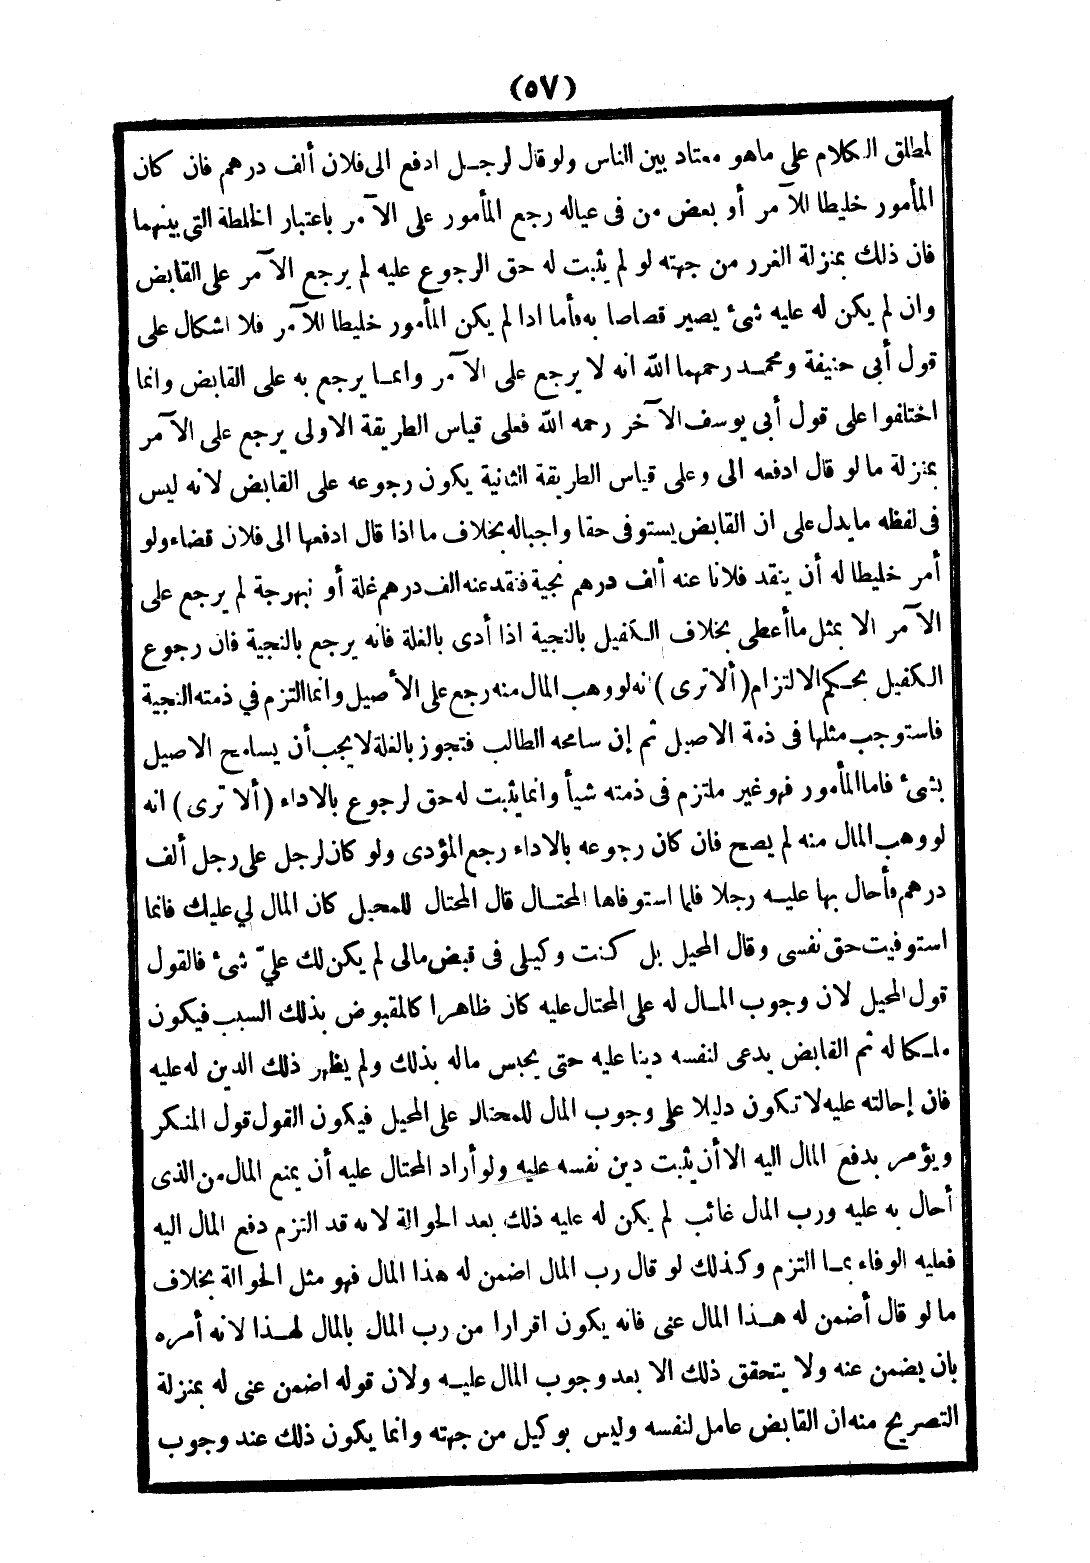 (٥٧)
لمطلق الكلام على ماهو معتاد بين الناس ولو قال لرجل ادفع الى فلان ألف درهم فان كان
المأمور خليطا للآمر أو بعض من فى عياله رجع المأمور على الآمر باعتبار الخلطة التى بينهما
فان ذلك بمنزلة الغرر من جهته لو لم يثبت له حق الرجوع عليه لم يرجع الآمر على القابض
وان لم يكن له عليه شئ يصير قصاصا به فأما اذا لم يكن المأمور خليطا للآمر فلا اشكال على
قول أبى حنيفة ومحمد رحمهما الله انه لا يرجع على الآمر وانما يرجع به على القابض وانما
اختلفوا على قول أبى يوسف الآخر رحمه الله فعلى قياس الطريقة الاولى يرجع على الآمر
بمنزلة ما لو قال ادفعه الى وعلى قياس الطريقة الثانية يكون رجوعه على القابض لانه ليس
فى لفظه مايدل على ان القابض يستوفى حقا واجباله بخلاف ما اذا قال ادفعها الى فلان قضاء ولو
أمر خليطا له أن ينقد فلانا عنه ألف درهم نجية فنقد عنه الف درهم غلة أو نبهرجة لم يرجع على
الآمر الا بمثل ما أعطى بخلاف الكفيل بالنجية اذا أدى بالغلة فانه يرجع بالنجية فان رجوع
الكفيل بحكم الالتزام (ألا ترى) انه لو وهب المال منه رجع على الأصيل وانما التزم في ذمته النجية
فاستوجب مثلها فى ذمة الاصيل ثم إن سامحه الطالب فتجوز بالغلة لا يجب أن يسامح الاصيل
بشئ فاما المأمور فهو غير ملتزم فى ذمته شيأ وانما يثبت له حق لرجوع بالاداء (ألا ترى) انه
لو وهب المال منه لم يصح فان كان رجوعه بالاداء رجع المؤدى ولو كان لرجل على رجل ألف
درهم فأحال بها عليه رجلا فلما استوفاها المحتال قال المحتال للمحيل كان المال لي عليك فانما
استوفيت حق نفسى وقال المحيل بل كنت وكيلى فى قبض مالى لم يكن لك عليّ شئ فالقول
قول المحيل لان وجوب المال له على المحتال عليه كان ظاهرا كالمقبوض بذلك السبب فيكون
ملكا له ثم القابض يدعى لنفسه دينا عليه حتى يحبس ماله بذلك ولم يظهر ذلك الدين له عليه
فان إحالته عليه لا تكون دليلا على وجوب المال للمحتال على المحيل فيكون القول قول المنكر
ويؤمر بدفع المال اليه الا أن يثبت دين نفسه عليه ولو أراد المحتال عليه أن يمنع المال من الذى
أحال به عليه ورب المال غائب لم يكن له عليه ذلك بعد الحوالة لانه قد التزم دفع المال اليه
فعليه الوفاء بما التزم وكذلك لو قال رب المال اضمن له هذا المال فهو مثل الحوالة بخلاف
ما لو قال أضمن له هذا المال عنى فانه يكون اقرارا من رب المال بالمال لهذا لانه أمره
بان يضمن عنه ولا يتحقق ذلك الا بعد وجوب المال عليه ولان قوله اضمن عنى له بمنزلة
التصريح منه ان القابض عامل لنفسه وليس بوكيل من جهته وانما يكون ذلك عند وجوب